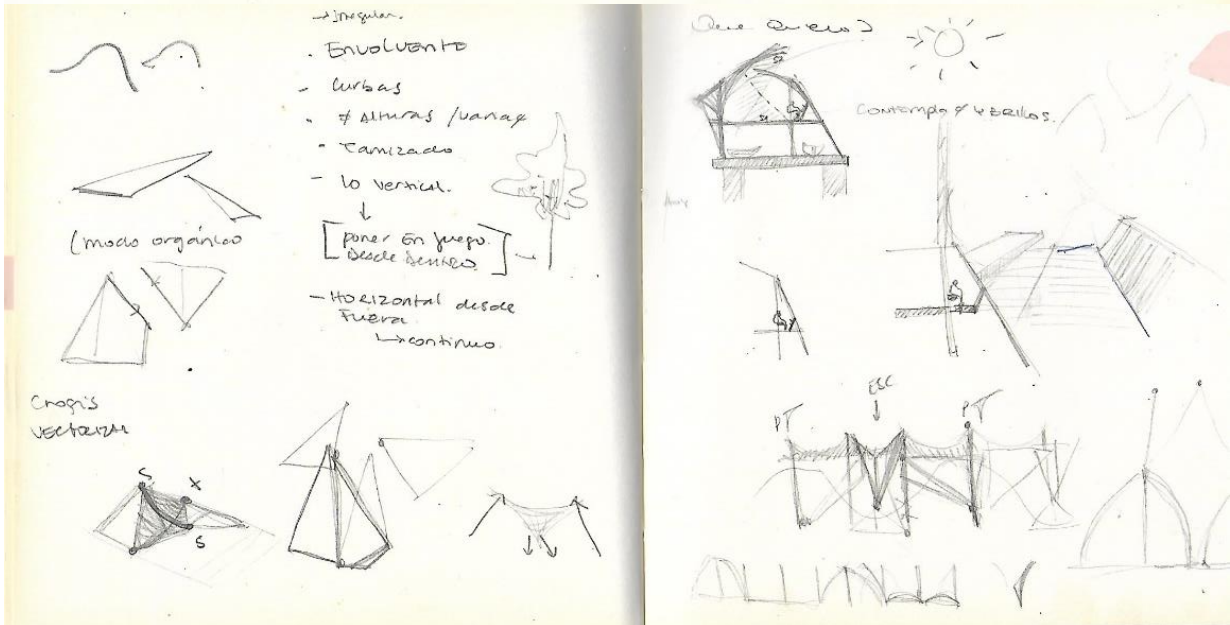 → irregular.
. ENVOLVENTE
- Curbas
. ≠ Alturas / varias
• Tamizado
- lo vertical.
↓
[poner en juego
desde dentro]
- HORIZONTAL desde
Fuera
↳ continuo.
(modo orgánico
Croqis
VECTORIZAR
S
X
S
Que Quiero?
CONTEMPLO
ESC
P
P